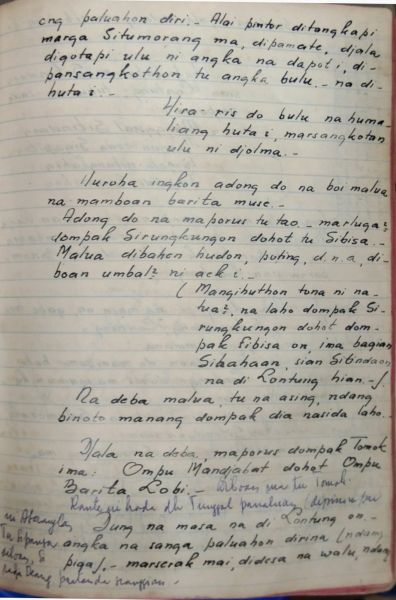 ong paluahon diri.- Alai pintor ditangkapi
marga Situmorang ma, dipamate, djala
digotapi ulu ni angka na dapot i, di-
pansangkothon tu angka bulu.- na di-
huta i.-
Hira-ris do bulu na huma-
liang huta i, marsangkotan
ulu ni djolma.-
Huroha ingkon adong do na boi malua
na mamboan barita muse.-
Adong do na maporus tu tao.- marluga²
dompak Sirungkungon dohot tu Sibisa.-
Malua dibahen hudon, poting, d.n.a, di-
boan umbal² ni aek i.-
( Mangihuthon tona ni na-
tua², na laho dompak Si-
rungkungon dohot dom-
pak Sibisa on, ima bagian
Sibahaan, sian Sitindaon
na di Lontung hian.-/.
Na deba malua, tu na asing, ndang
binoto manang dompak dia nasida laho.-
Djala na deba, maporus dompak Tomok
ima: Ompu Mandjabat dohot Ompu
Barita Lobi.- Diboan ma tu Tomok.
Tunggal panaluan,
Dung na masa na di Lontung on.-
angka na sanga paluahon dirina (ndang
piga/.- marserak mai, didesa na walu, ndang